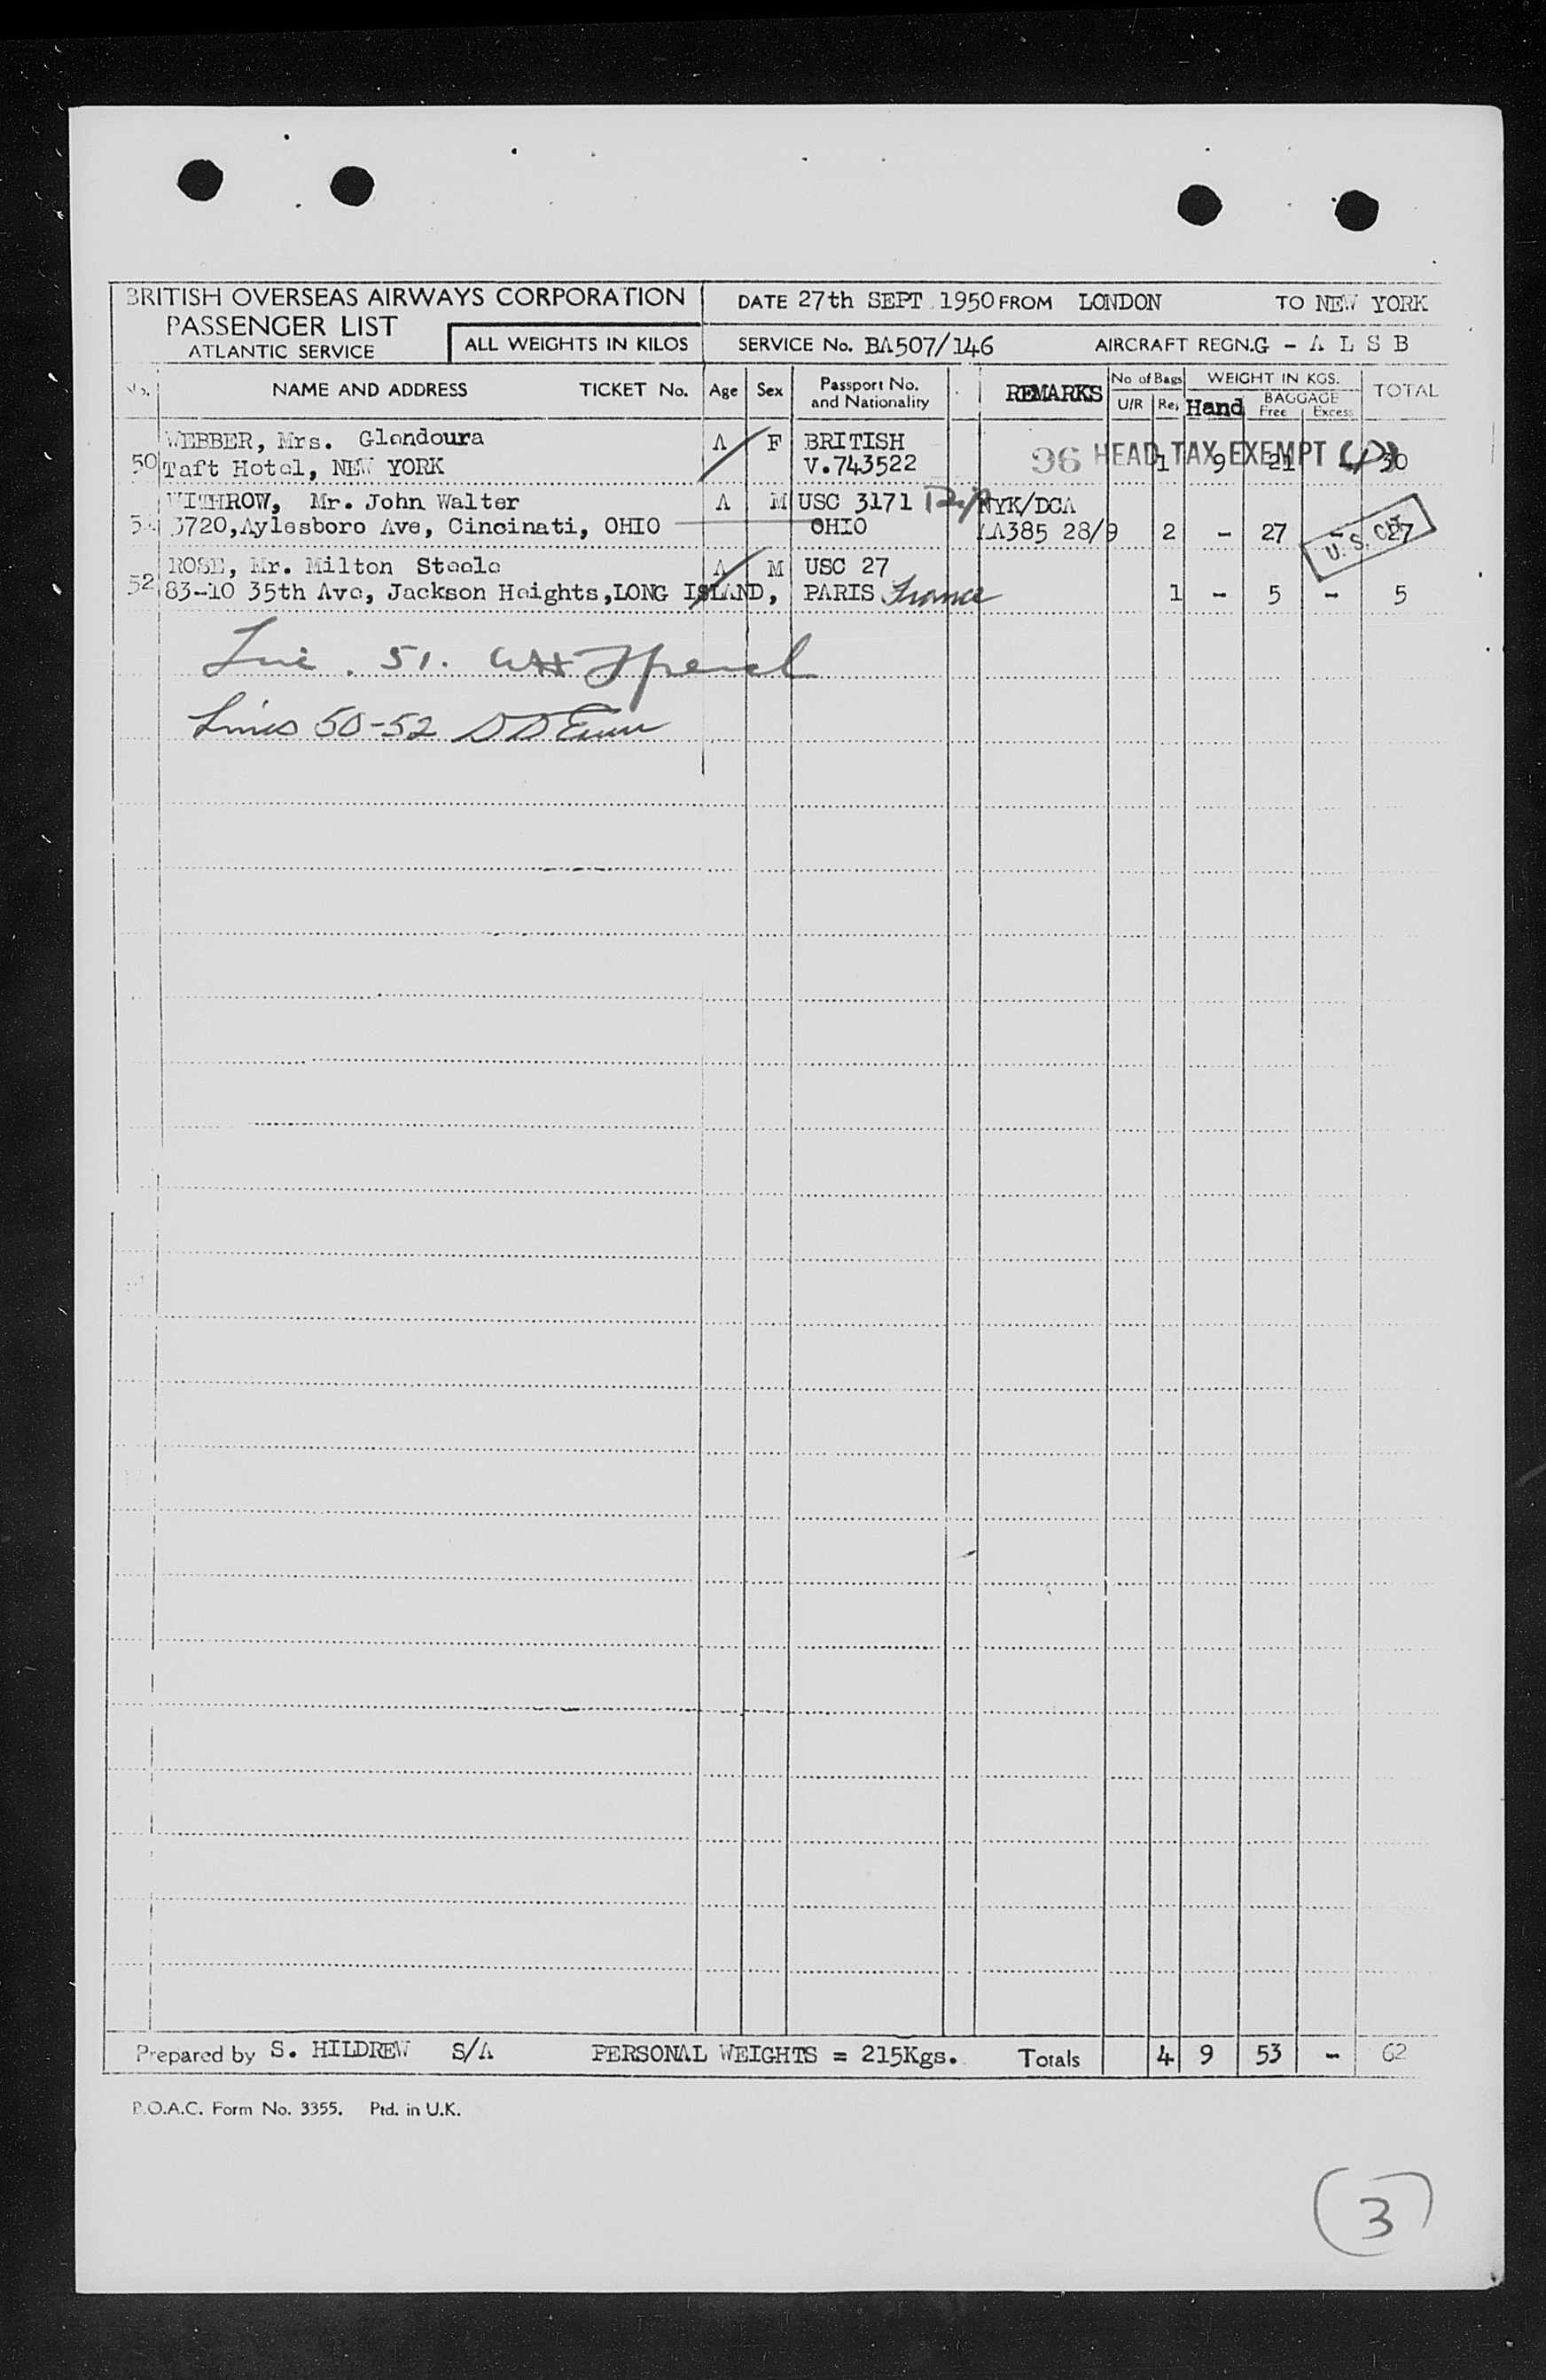 BRITISH OVERSEAS AIRWAYS CORPORATION
PASSENGER LIST
ATLANTIC SERVICE
ALL WEIGHTS IN KILOS
DATE 27th SEPT 1950 FROM LONDON TO NEW YORK
SERVICE No. BA507/146 AIRCRAFT REGN. G - A L S B
No. NAME AND ADDRESS TICKET No. Age Sex Passport No. and Nationality REMARKS No of Bags U/R Re, WEIGHT IN KGS. Hand BAGGAGE Free Excess TOTAL
WEBBER, Mrs. Glendoura A F BRITISH
50 Taft Hotel, NEW YORK V.743522 96 HEAD TAX EXEMPT 1 9 21 - 30
WITHROW, Mr. John Walter A M USC 3171 Dip NYK/DCA
51 3720,Aylesboro Ave, Cincinati, OHIO OHIO AA385 28/9 2 - 27 - 27
U. S. CIT
ROSE, Mr. Milton Steele A M USC 27
52 83-10 35th Ave, Jackson Heights,LONG ISLAND, PARIS France 1 - 5 - 5
Line . 51.
Lines 50-52
Prepared by S. HILDREW S/A PERSONAL WEIGHTS = 215Kgs. Totals 4 9 53 - 62
B.O.A.C. Form No. 3355. Ptd. in U.K.
3